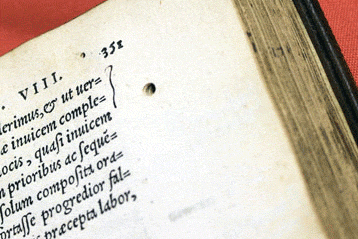 351
. VIII.
erimus, & ut uer=
æ inuicem comple=
ocis, quasi inuicem
n prioribus ac sequē=
solum composita ora=
ortasse progredior fal=
præcepta labor,